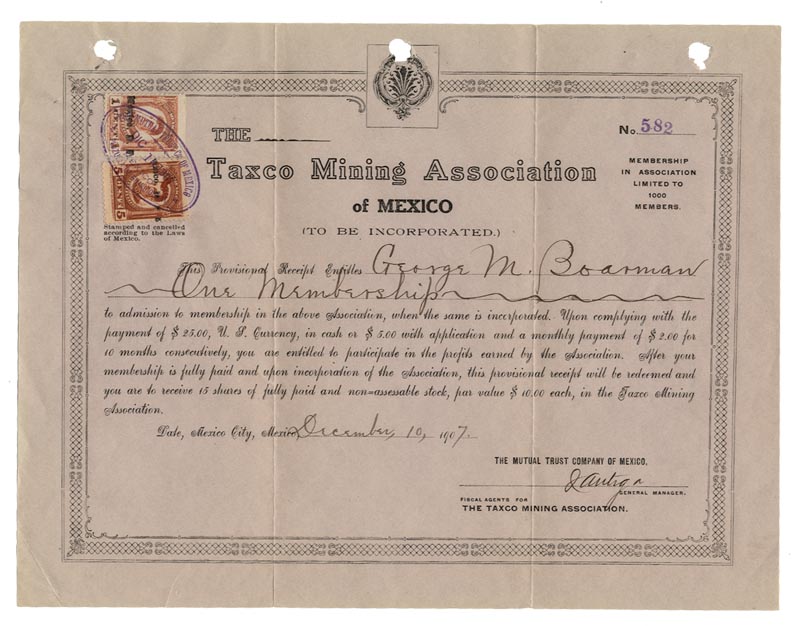 THE
No. 582
Taxco Mining Association
of MEXICO
(TO BE INCORPORATED.)
MEMBERSHIP
IN ASSOCIATION
LIMITED TO
1000
MEMBERS.
Stamped and cancelled
according to the Laws
of Mexico.
This Provisional Receipt Entitles George M. Boarman
One Membership
to admission to membership in the above Association, when the same is incorporated. Upon complying with the
payment of $ 25.00, U. S. Currency, in cash or $ 5.00 with application and a monthly payment of $ 2.00 for
10 months consecutively, you are entitled to participate in the profits earned by the Association. After your
membership is fully paid and upon incorporation of the Association, this provisional receipt will be redeemed and
you are to receive 15 shares of fully paid and non=assessable stock, par value $ 10.00 each, in the Taxco Mining
Association.
Date, Mexico City, Mexico, December, 10, 1907.
THE MUTUAL TRUST COMPANY OF MEXICO.
GENERAL MANAGER.
FISCAL AGENTS FOR
THE TAXCO MINING ASSOCIATION.